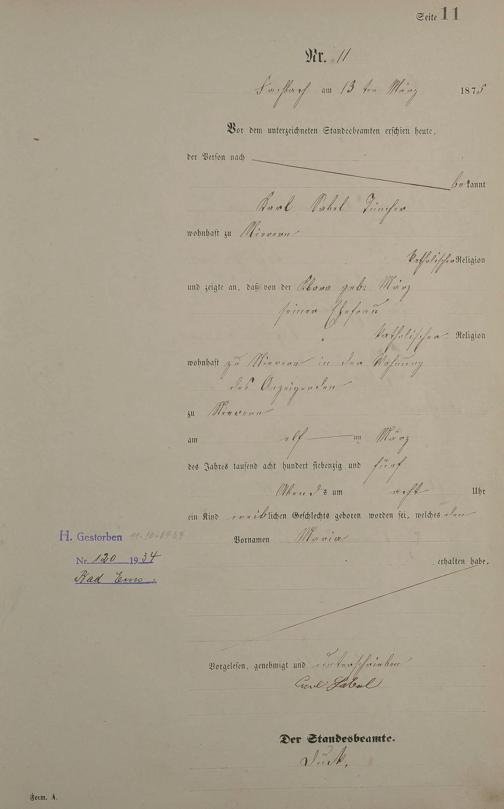 Seite 11
Nr. 11
Fachbach am 13 ten März 1875
Vor dem unterzeichneten Standesbeamten erschien heute,
der Person nach
be kannt
Karl Sabel Tüncher
wohnhaft zu Nievern
katholischer Religion
und zeigte an, daß von der Clara geb: März
seiner Ehefrau
katholischer Religion
wohnhaft zu Nievern in der Wohnung
des Anzeigenden
zu Nievern
am elf en März
des Jahres tausend acht hundert siebenzig und fünf
Abends um acht Uhr
ein Kind weiblichen Geschlechts geboren worden sei, welches den
Vornamen Maria
erhalten habe.
H. Gestorben
Nr. 120 1934
Bad Ems.
Vorgelesen, genehmigt und unterschrieben
Carl Sabel
Der Standesbeamte.
Form. A.